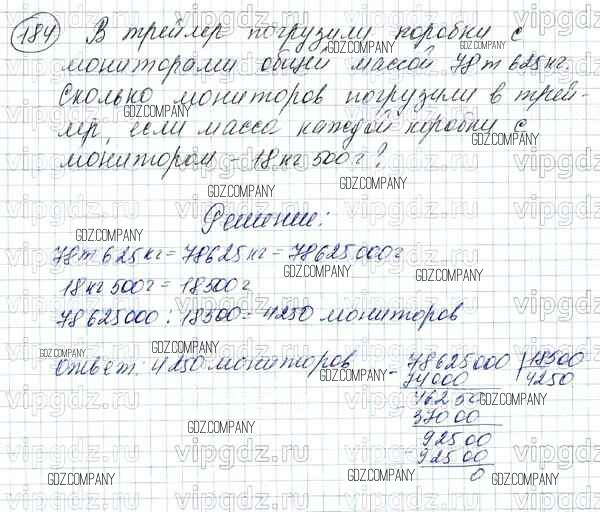 184 В трейлер погрузили коробки с
мониторами общей массой 78т 625кг.
Сколько мониторов погрузили в трей-
лер, если масса каждой коробки с
монитором - 18кг 500г?
Решение:
78т 625кг = 78625кг = 78625000г
18кг 500г = 18500г
78625000 : 18500 = 4250 мониторов
Ответ: 4250 мониторов
- 78625000 | 18500
74000 4250
- 46250
37000
- 92500
92500
0
GDZ.COMPANY
vipgdz.ru